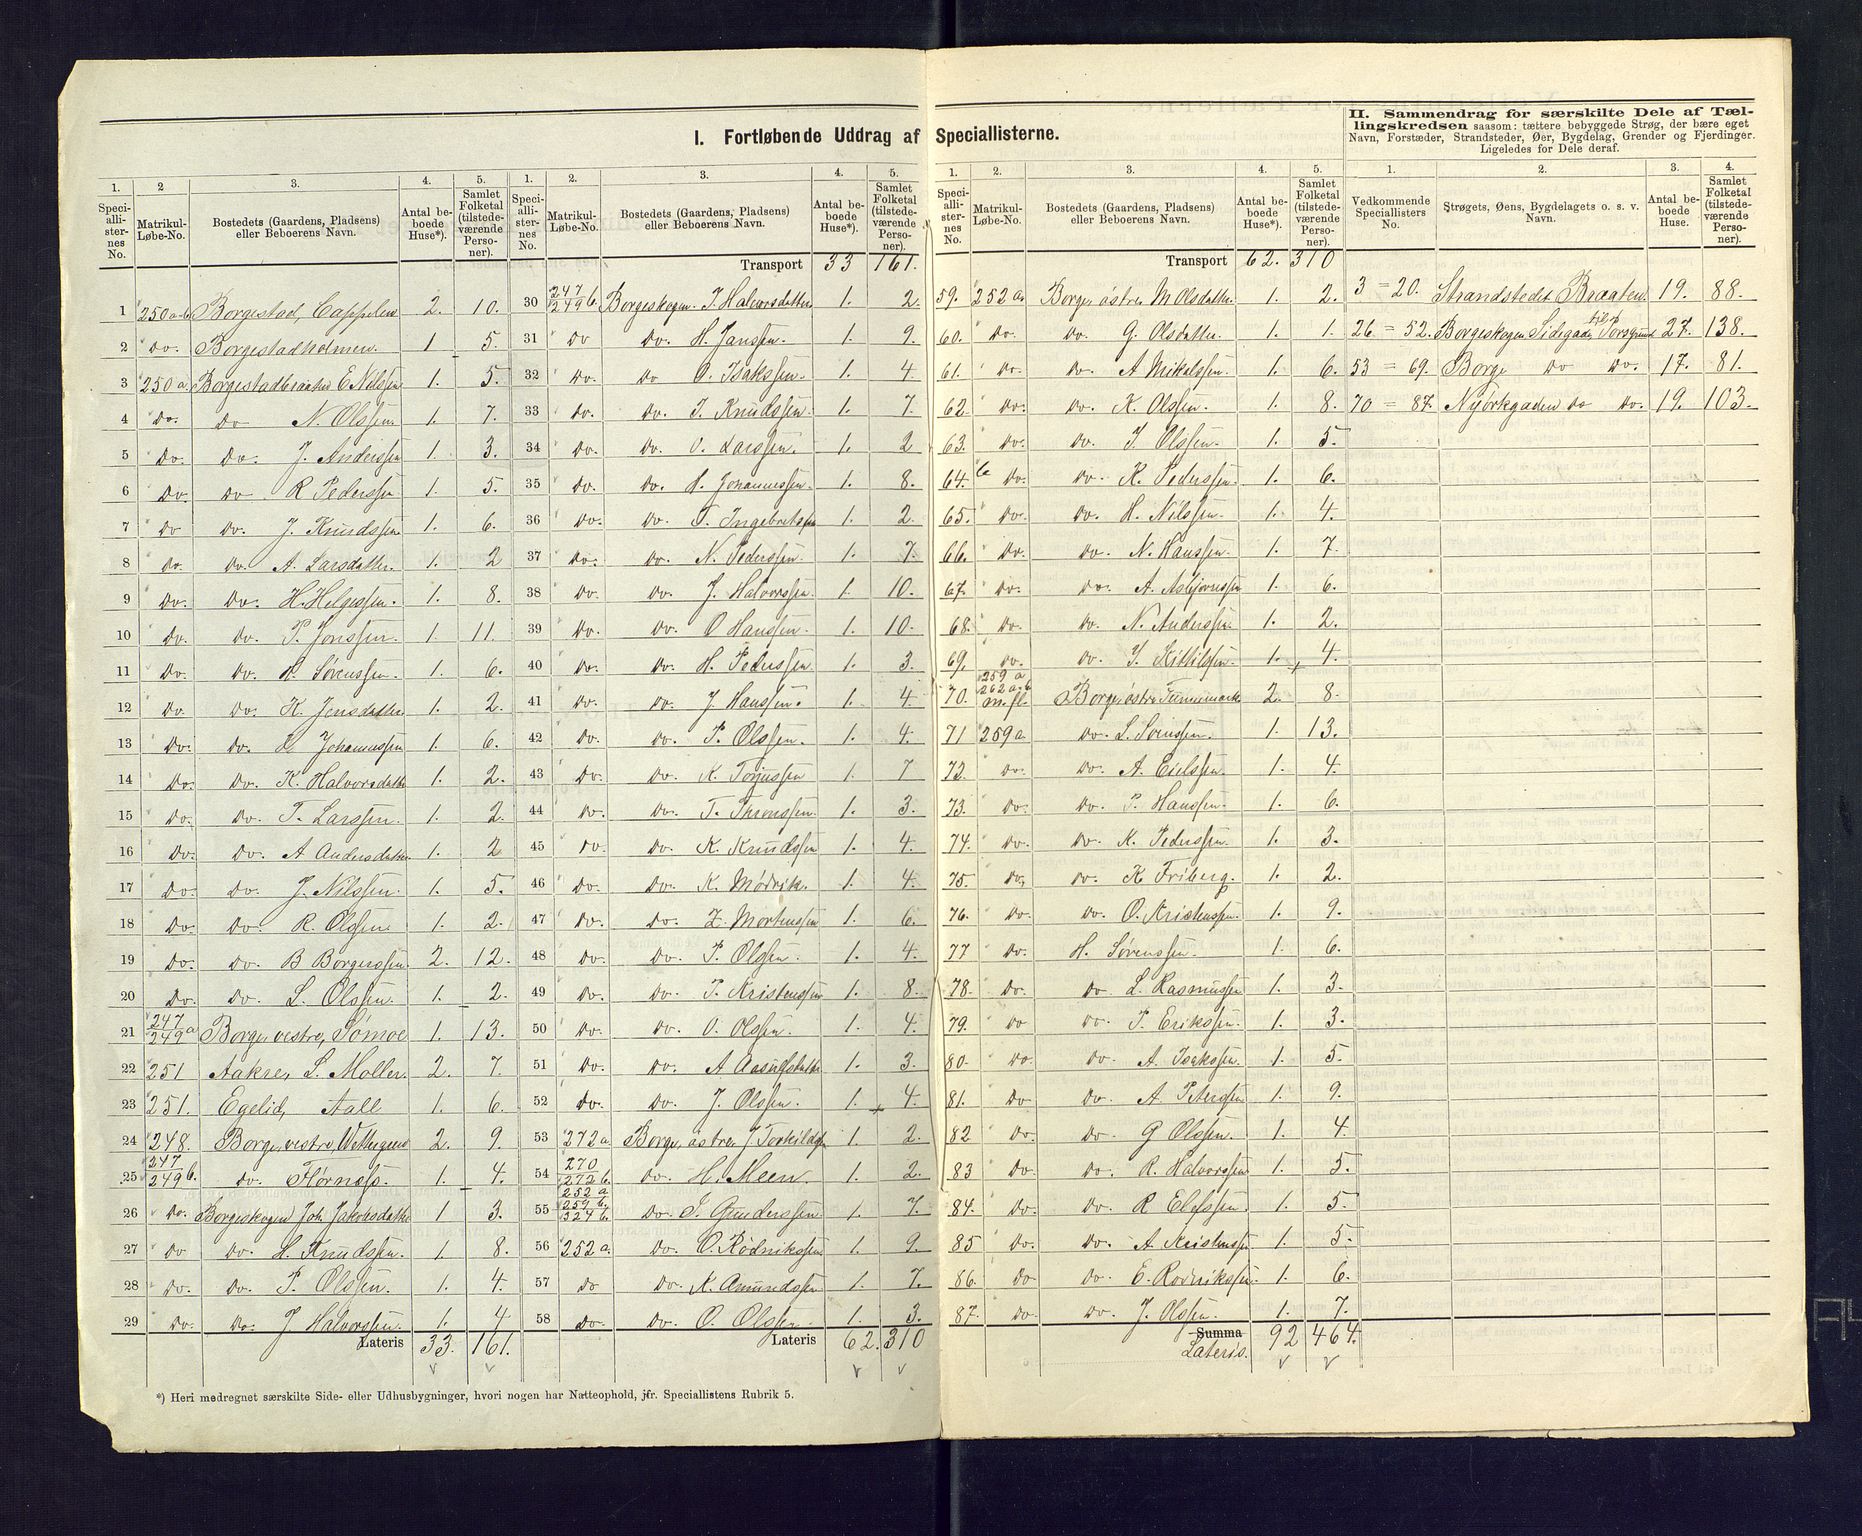 I. Fortløbende Uddrag af Speciallisterne.
II. Sammendrag for særskilte Dele af Tæl-
lingskredsen saasom: tættere bebyggede Strøg, der bære eget
Navn, Forstæder, Strandsteder, Øer, Bygdelag, Grender og Fjerdinger.
Ligeledes for Dele deraf.
1. 2 3. 4. 5.
Speciallisternes No. Matrikul-Løbe-No. Bostedets (Gaardens, Pladsens) eller Beboerens Navn. Antal beboede Huse*). Samlet Folketal (tilstedeværende Personer).
1 250 a-b Borgestad, Cappelen 2. 10.
2 Do. Borgestadholmen. 1 5.
3 250 a. Borgestadbraaten E Nilssen 1. 5.
4 Do. Do N. Olssen. 1. 7.
5 Do. Do. J. Anderssen 1. 3.
6 Do. Do R Pederssen 1. 5.
7 Do Do. J. Knudssen 1. 6.
8 Do. Do. A. Larsdatter. 1. 2
9 Do. Do. H. Helgessen. 1. 8.
10 Do. Do. P. Jonssen. 1. 11.
11 Do. Do. H. Sørenssen. 1. 6.
12 Do. Do. K. Jensdatter. 1. 2.
13 Do. Do. Johannessen 1. 6.
14 Do. Do. K. Halvorsdatter 1. 2.
15 Do. Do. T. Larssen. 1. 2.
16 Do. Do. A Andersdatter 1. 2
17 Do. Do. J. Nilssen. 1. 5.
18 Do. Do. R. Olssen. 1. 2.
19 Do. Do. B Borgerssen. 2. 12.
20 Do. Do. L. Olssen. 1. 2.
21 247/249 a Borge, vestre, Sømoe 1. 13.
22 251 Aakre, L. Møller. 2. 7.
23 251. Egelid, Aall 1. 6.
24 248. Borge, vestre, 2. 9.
25 247/249 b. Do. 1. 4.
26 Do. Borgeskogen Joh. Jakobsdatter 1 3.
27 Do Do. H. Knudssen. 1. 8.
28 Do. Do. P. Olssen. 1. 4.
29 Do. Do. J Halvorssen. 1. 4
Lateris 33. 161.
1. 2. 3. 4. 5.
Speciallisternes No. Matrikul-Løbe-No. Bostedets (Gaardens, Pladsens) eller Beboerens Navn. Antal beboede Huse*). Samlet Folketal (tilstedeværende Personer).
Transport 33 161.
30 247/249 b. Borgeskogen J. Halvorsdatter 1. 2.
31 Do Do. H. Janssen. 1. 9.
32 Do. Do O. Isakssen. 1. 4.
33 Do. Do. J. Knudssen. 1. 7.
34 Do. Do. O. Larssen. 1. 2
35 Do. Do. Johannessen. 1. 8.
36 Do. Do. Ingebretsen 1. 2.
37 Do. Do. N. Pederssen. 1. 7.
38 Do. Do. J. Halvorssen. 1. 10.
39 Do. Do. O Hanssen. 1. 10.
40 Do. Do. H. Pederssen. 1. 3.
41 Do. Do. J. Hanssen. 1. 4.
42 Do. Do. P. Olssen. 1. 4.
43 Do. Do. K. Torjussen 1. 7
44 Do. Do. T. 1. 3.
45 Do. Do. K. Knudssen 1. 4.
46 Do. Do. K. Mødrik. 1. 4.
47 Do. Do. Z. Mortenssen 1. 6.
48 Do. Do. P. Olssen. 1. 4.
49 Do. Do. P. Kristenssen 1. 8.
50 Do. Do. O. Olssen. 1. 4.
51 Do. Do. A 1. 3.
52 Do. Do. J. Olssen. 1. 4.
53 272 a. Borge, østre, J. Torkildsen 1. 2.
54 270/272 b. Do. H. Meen. 1. 2.
55 252 a 259 b. 324 b. Do. Gunderssen 1. 7.
56 252 a. Do. O. Rødrikssen 1. 9.
57 Do Do. K. Amundssen 1. 7.
58 Do. Do. O. Olssen. 1. 3.
Lateris 62. 310
*) Heri medregnet særskilte Side- eller Udhusbygninger, hvori nogen har Natteophold, jfr. Speciallistens Rubrik 5.
1. 2. 3. 4. 5.
Speciallisternes No. Matrikul-Løbe-No. Bostedets (Gaardens, Pladsens) eller Beboerens Navn. Antal beboede Huse*). Samlet Folketal (tilstedeværende Personer).
Transport 62. 310
59. 252 a. Borge, østre M. Olsdatter 1. 2.
60. Do. Do. G. Olsdatter. 1. 1.
61. Do. Do. A Mikelssen. 1. 6.
62. Do. Do. K. Olssen. 1. 8.
63. Do. Do. J. Olssen. 1. 5.
64. Do. Do. K. Pederssen. 1. 6.
65. Do. Do. H. Nilssen. 1. 4.
66. Do. Do. N. Hanssen. 1. 7.
67. Do. Do. A. Asbjørnssen 1. 6.
68. Do. Do. N. Anderssen. 1. 2.
69. Do. Do. Kittilssen. 1. 4.
70. 259 a 262 a-b m.fl. Borge, østre 2. 8.
71 259 a. Do. L. Sørenssen. 1. 13.
72. Do. Do. A. Eielssen. 1. 4.
73. Do. Do. P. Hanssen. 1. 6.
74. Do. Do. K. Pederssen. 1. 3.
75. Do. Do. K. Friberg. 1. 2.
76. Do. Do. O. Kristenssen. 1. 9.
77 Do. H. Sørenssen. 1. 6.
78. Do. Do L. Rasmussen 1. 3.
79. Do Do. P. Erikssen. 1. 3.
80. Do Do. A. Isakssen. 1. 5
81. Do Do. A Peterssen 1. 9.
82 Do. Do. G Olssen. 1. 4
83 Do. Do. R. Halvorssen 1. 5
84. Do. Do. R 1. 5
85 Do. Do. A Kristenssen 1. 5.
86. Do Do. E. Rodrikssen. 1. 6.
87. Do Do. J. Olssen. 1. 7.
Summa Lateris. 92 464.
1. 2. 3. 4.
Vedkommende Speciallisters No. Strøgets, Øens, Bygdelagets o. s. v. Navn. Antal beboede Huse. Samlet Folketal (tilstedeværende Personer).
3 = 20. Strandstedet Braaten 19. 88.
26 = 52. Borgeskogen Sidegade til Porsgrund 27. 138.
53 = 69. Borge Do Do. 17. 81.
70 = 87. Nyørkgaden Do Do. 19. 103.